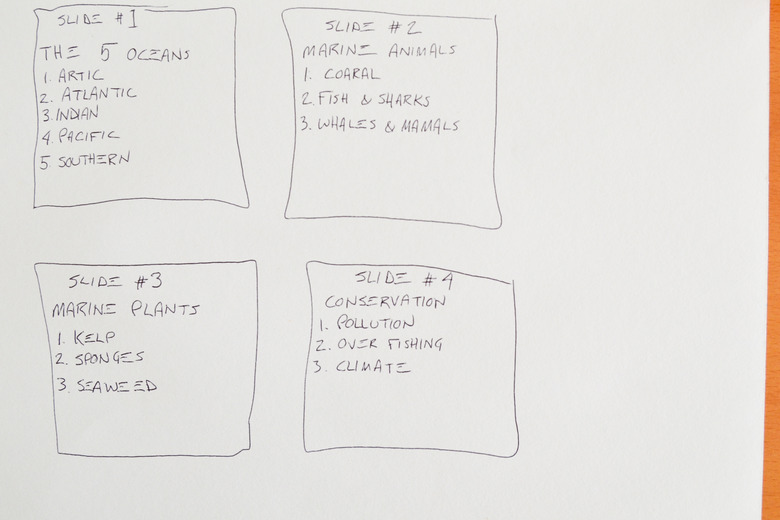 SLIDE #1
THE 5 OCEANS
1. ARTIC
2. ATLANTIC
3. INDIAN
4. PACIFIC
5. SOUTHERN
SLIDE #2
MARINE ANIMALS
1. COARAL
2. FISH & SHARKS
3. WHALES & MAMALS
SLIDE #3
MARINE PLANTS
1. KELP
2. SPONGES
3. SEAWEED
SLIDE #4
CONSERVATION
1. POLLUTION
2. OVER FISHING
3. CLIMATE